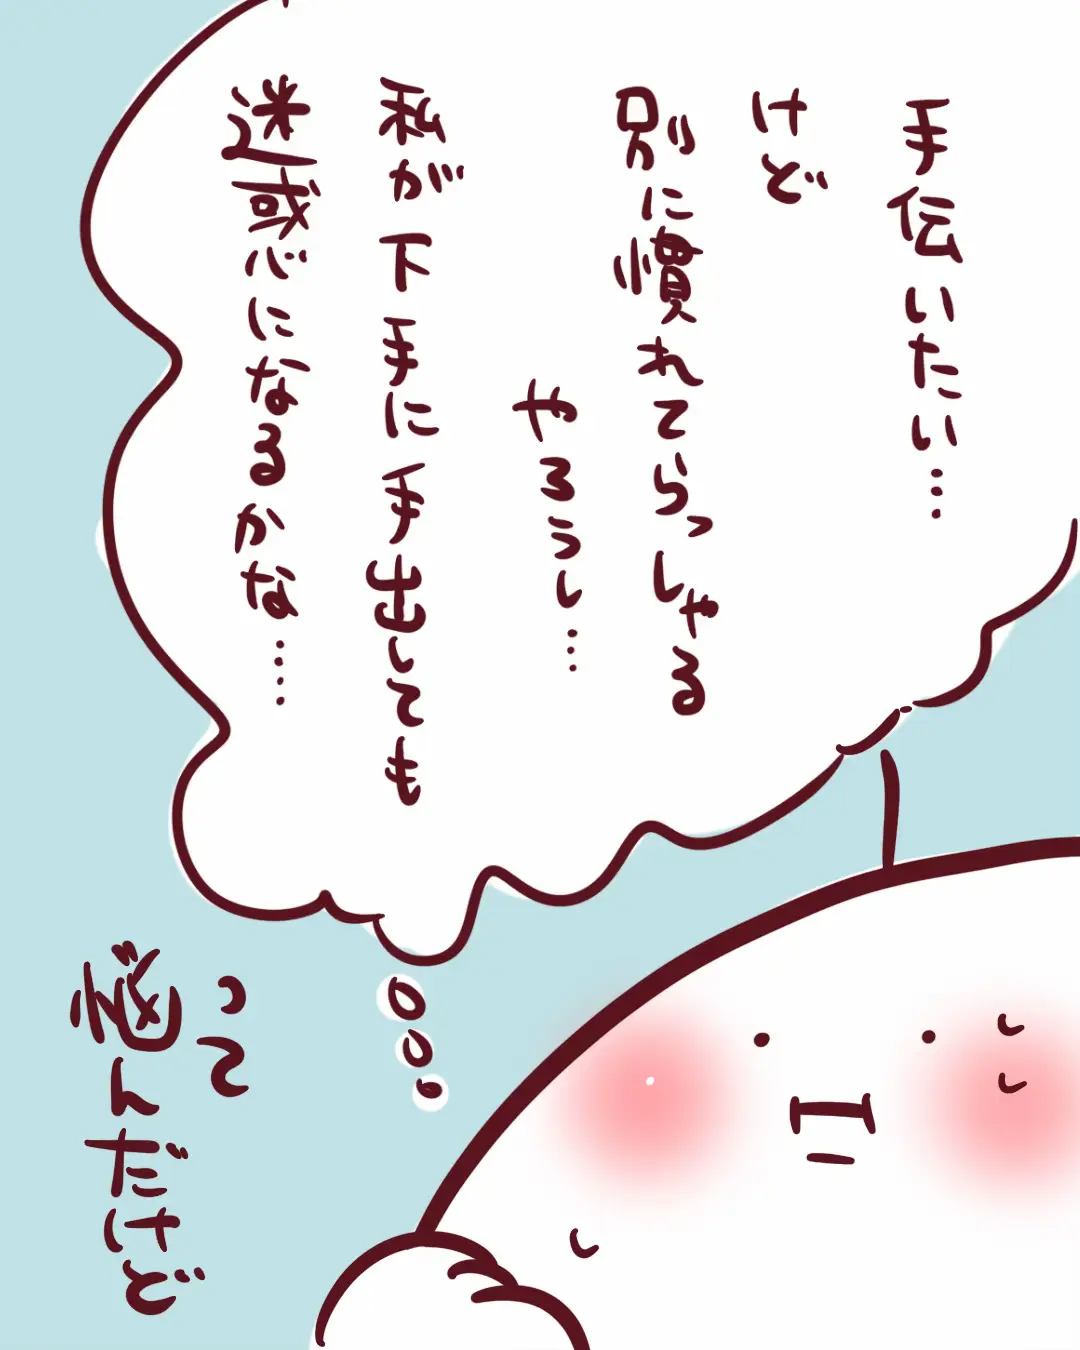 手伝いたい…
けど
別に慣れてらっしゃる
やろうし…
私が下手に手出しても
迷惑になるかな……
って
悩んだけど